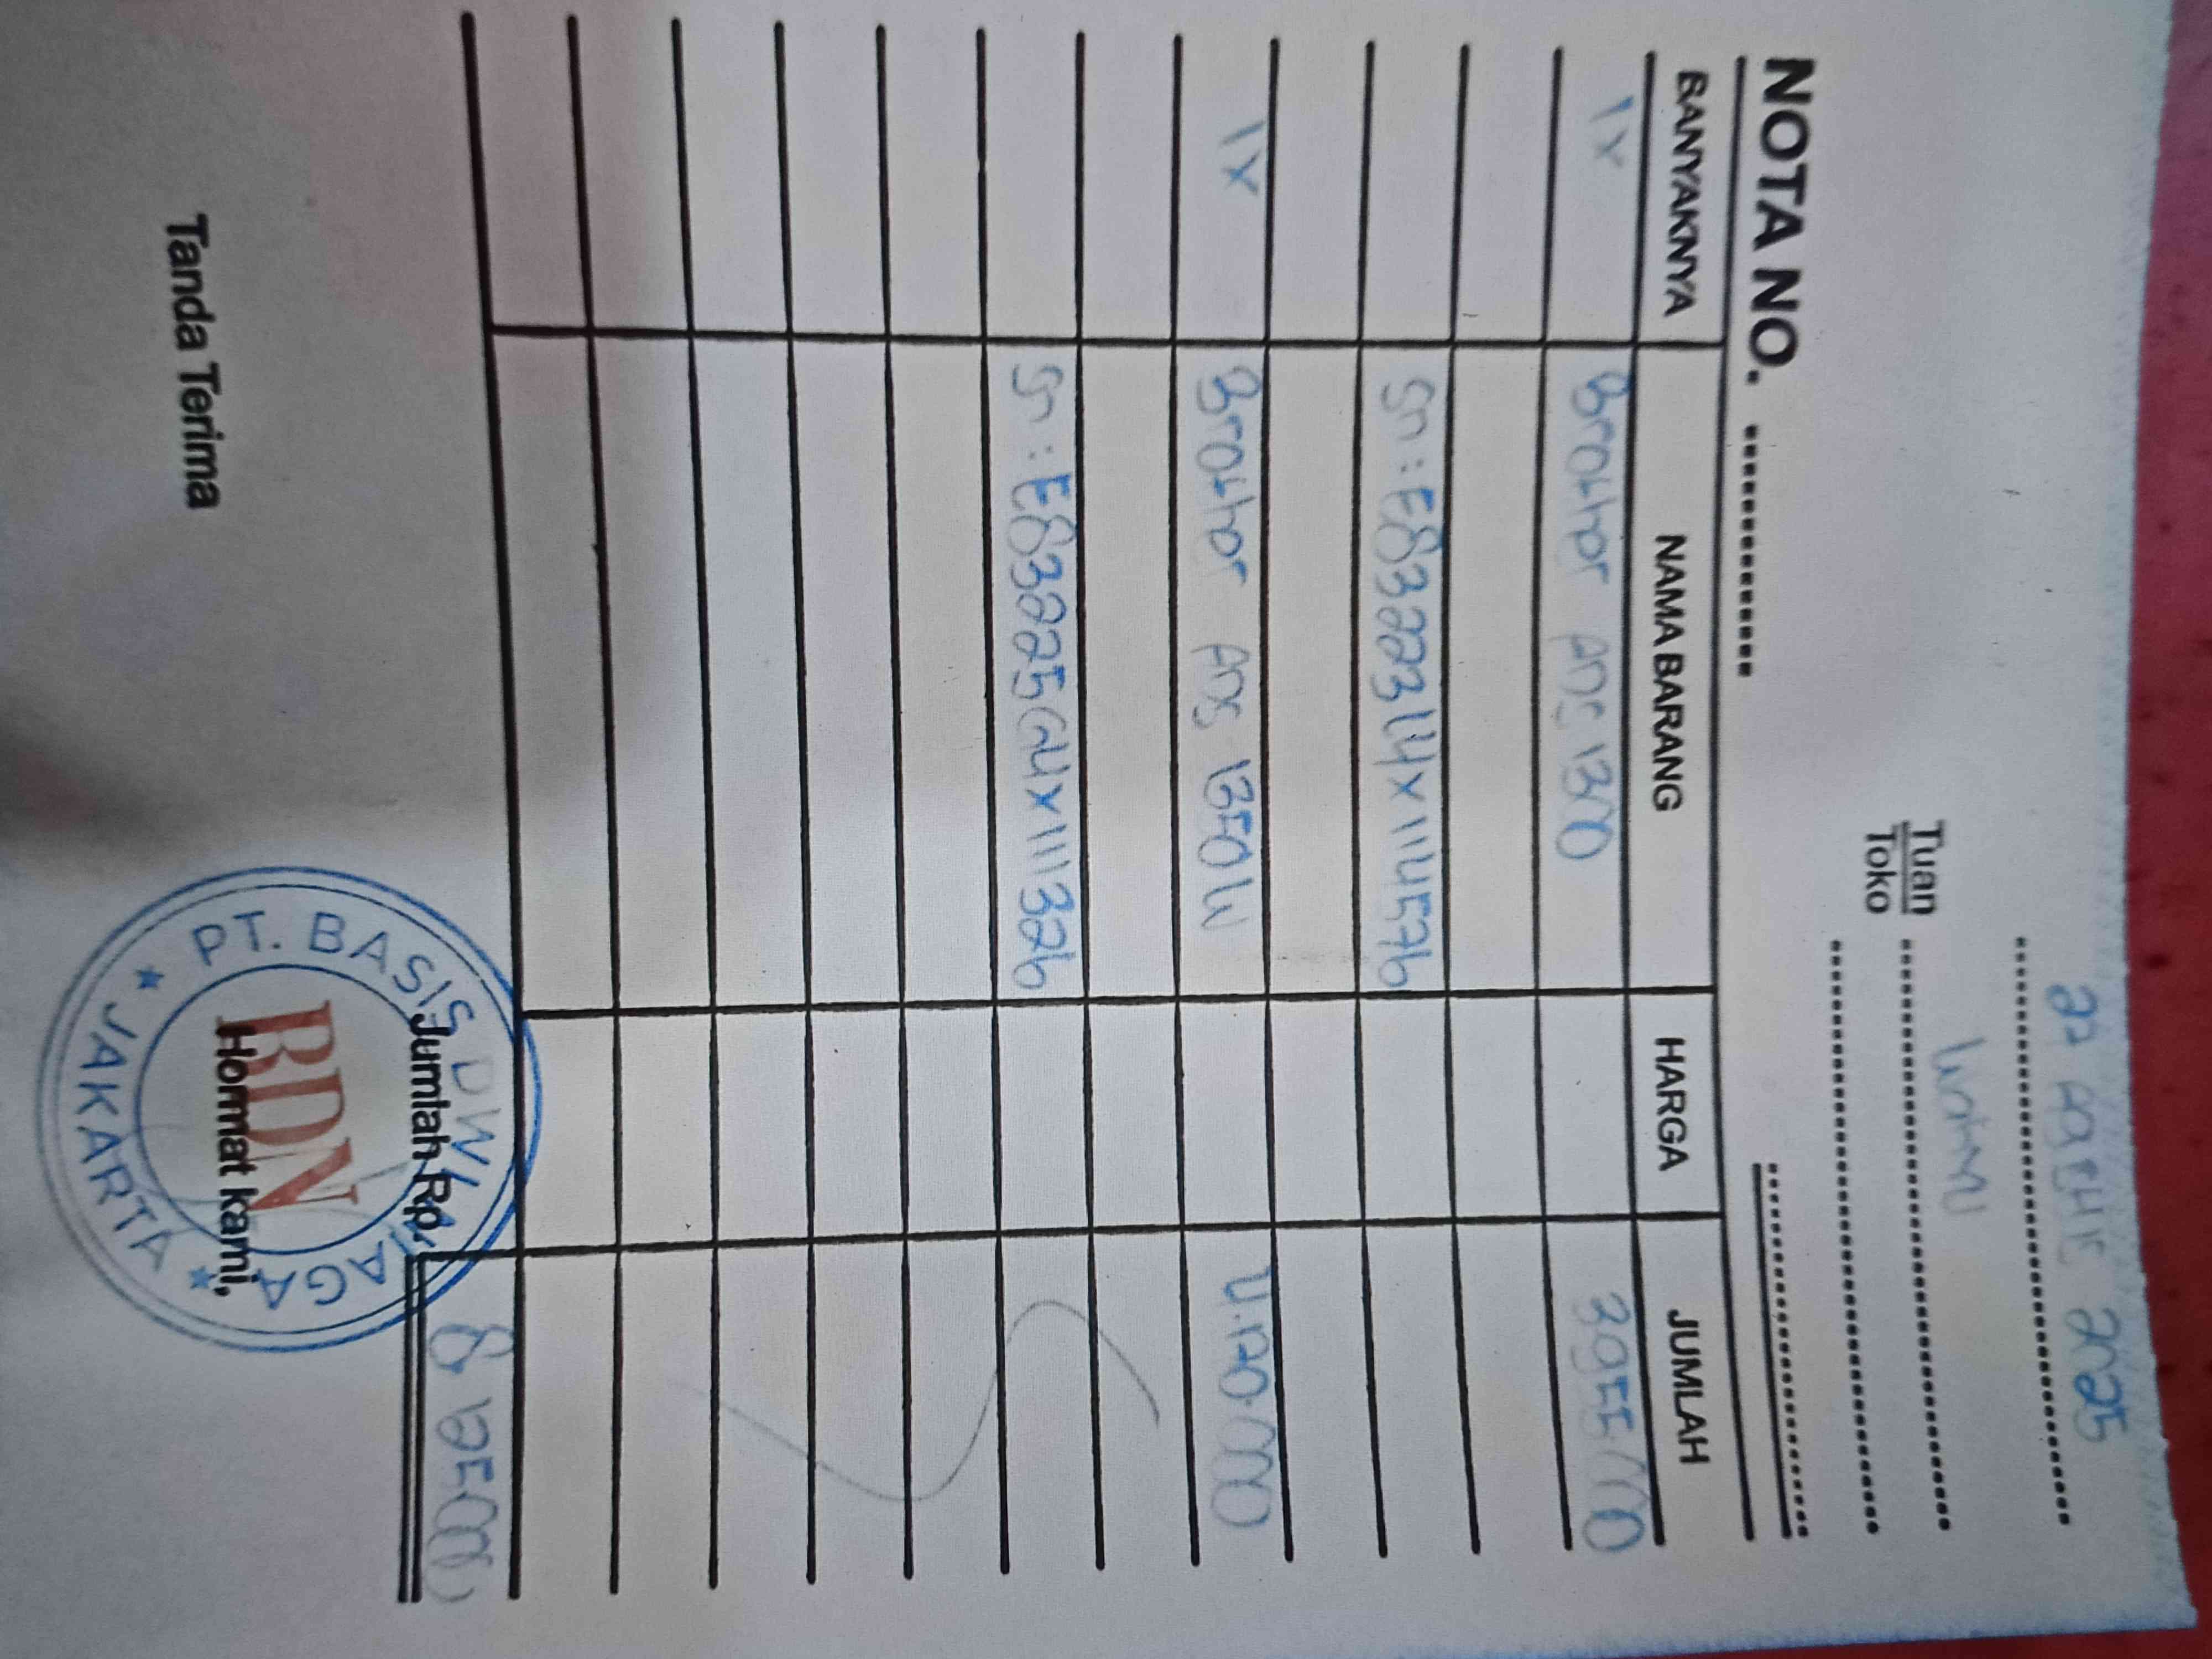 2025
Tuan
Toko
NOTA NO.
BANYAKNYA NAMA BARANG HARGA JUMLAH
1x Brother Ads 1300 3955000
Sn : E83223L4X114576
1x Brother Ads 1350W 4.170.000
Sn : E83225C4X111326
Jumlah Rp. 8.125000
Tanda Terima
Hormat kami,
PT. BASIS DWI
AGA
BDN
JAKARTA